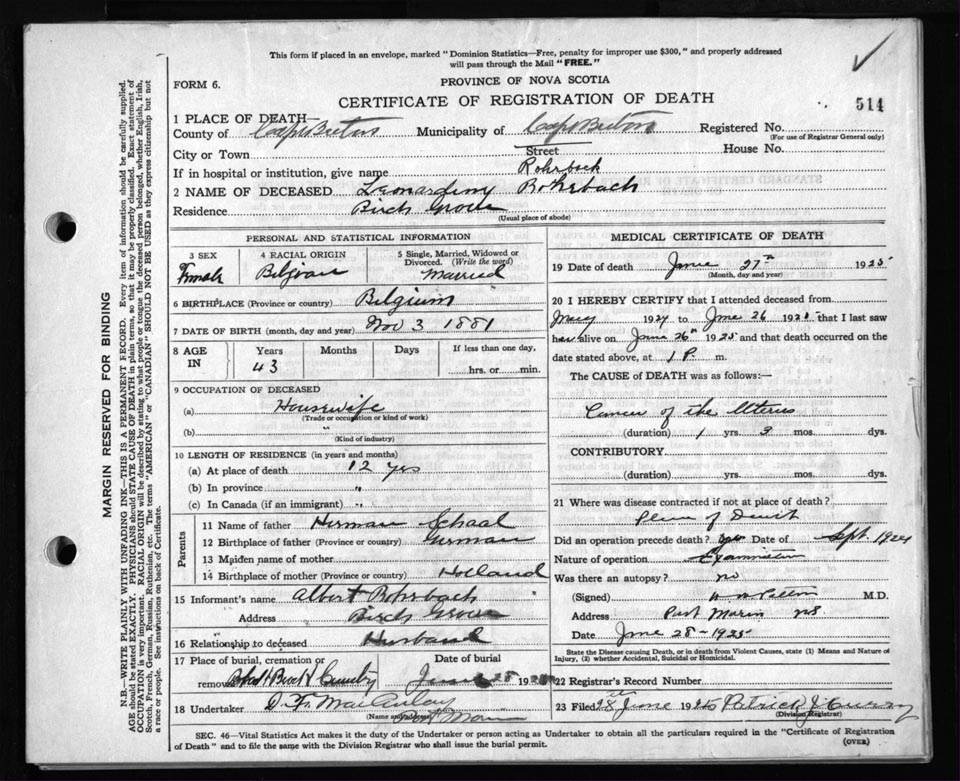 This form if placed in an envelope, marked "Dominion Statistics—Free, penalty for improper use $300," and properly addressed
will pass through the Mail "FREE."
FORM 6.
PROVINCE OF NOVA SCOTIA
CERTIFICATE OF REGISTRATION OF DEATH
514
1 PLACE OF DEATH—
County of Cape Breton Municipality of Cape Breton Registered No.
(For use of Registrar General only)
City or Town Street House No.
If in hospital or institution, give name Rohrback
2 NAME OF DECEASED Rohrbach
Residence Birch Grove
(Usual place of abode)
PERSONAL AND STATISTICAL INFORMATION
3 SEX 4 RACIAL ORIGIN 5 Single, Married, Widowed or
Divorced. (Write the word)
Female Belgian Married
6 BIRTHPLACE (Province or country) Belgium
7 DATE OF BIRTH (month, day and year) Nov 3 1881
8 AGE IN Years Months Days If less than one day,
43 hrs. or min.
9 OCCUPATION OF DECEASED
(a) Housewife
(Trade or occupation or kind of work)
(b) "
(Kind of industry)
10 LENGTH OF RESIDENCE (in years and months)
(a) At place of death 12 yrs
(b) In province "
(c) In Canada (if an immigrant) "
Parents
11 Name of father Herman Schaal
12 Birthplace of father (Province or country) German
13 Maiden name of mother
14 Birthplace of mother (Province or country) Holland
15 Informant's name Albert Rohrbach
Address Birch Grove
16 Relationship to deceased Husband
17 Place of burial, cremation or Date of burial
removal June 28 19
18 Undertaker D. F. MacAulay
(Name and address)
MEDICAL CERTIFICATE OF DEATH
19 Date of death June 27th 1925
(Month, day and year)
20 I HEREBY CERTIFY that I attended deceased from
1924 to June 26 192 that I last saw
her alive on June 26th 1925 and that death occurred on the
date stated above, at 1 P. m.
The CAUSE of DEATH was as follows:—
Cancer of the Uterus
(duration) 1 yrs. 3 mos. dys.
CONTRIBUTORY
(duration) yrs. mos. dys.
21 Where was disease contracted if not at place of death?
Place of Death
Did an operation precede death? Date of Sept. 1924
Nature of operation Examination
Was there an autopsy? no
(Signed) M.D.
Address Port Morien NS
Date June 28 - 1925
State the Disease causing Death, or in death from Violent causes, state (1) Means and Nature of
Injury, (2) whether Accidental, Suicidal or Homicidal.
22 Registrar's Record Number
23 Filed 28 June 192 Patrick J Curry
(Division Registrar)
SEC. 46—Vital Statistics Act makes it the duty of the Undertaker or person acting as Undertaker to obtain all the particulars required in the "Certificate of Registration
of Death" and to file the same with the Division Registrar who shall issue the burial permit.
(OVER)
MARGIN RESERVED FOR BINDING
N.B.—WRITE PLAINLY WITH UNFADING INK—THIS IS A PERMANENT RECORD. Every item of information should be carefully supplied.
AGE should be stated EXACTLY. PHYSICIANS should STATE CAUSE OF DEATH in plain terms, so that it may be properly classified. Exact statement of
OCCUPATION is very important. RACIAL ORIGIN will be described by stating to what people or tongue the deceased person belonged, whether English, Irish,
Scotch, French, German, Russian, Ruthenian, etc. The terms "AMERICAN" or "CANADIAN" SHOULD NOT BE USED as they express citizenship but not
a race or people. See instructions on back of Certificate.